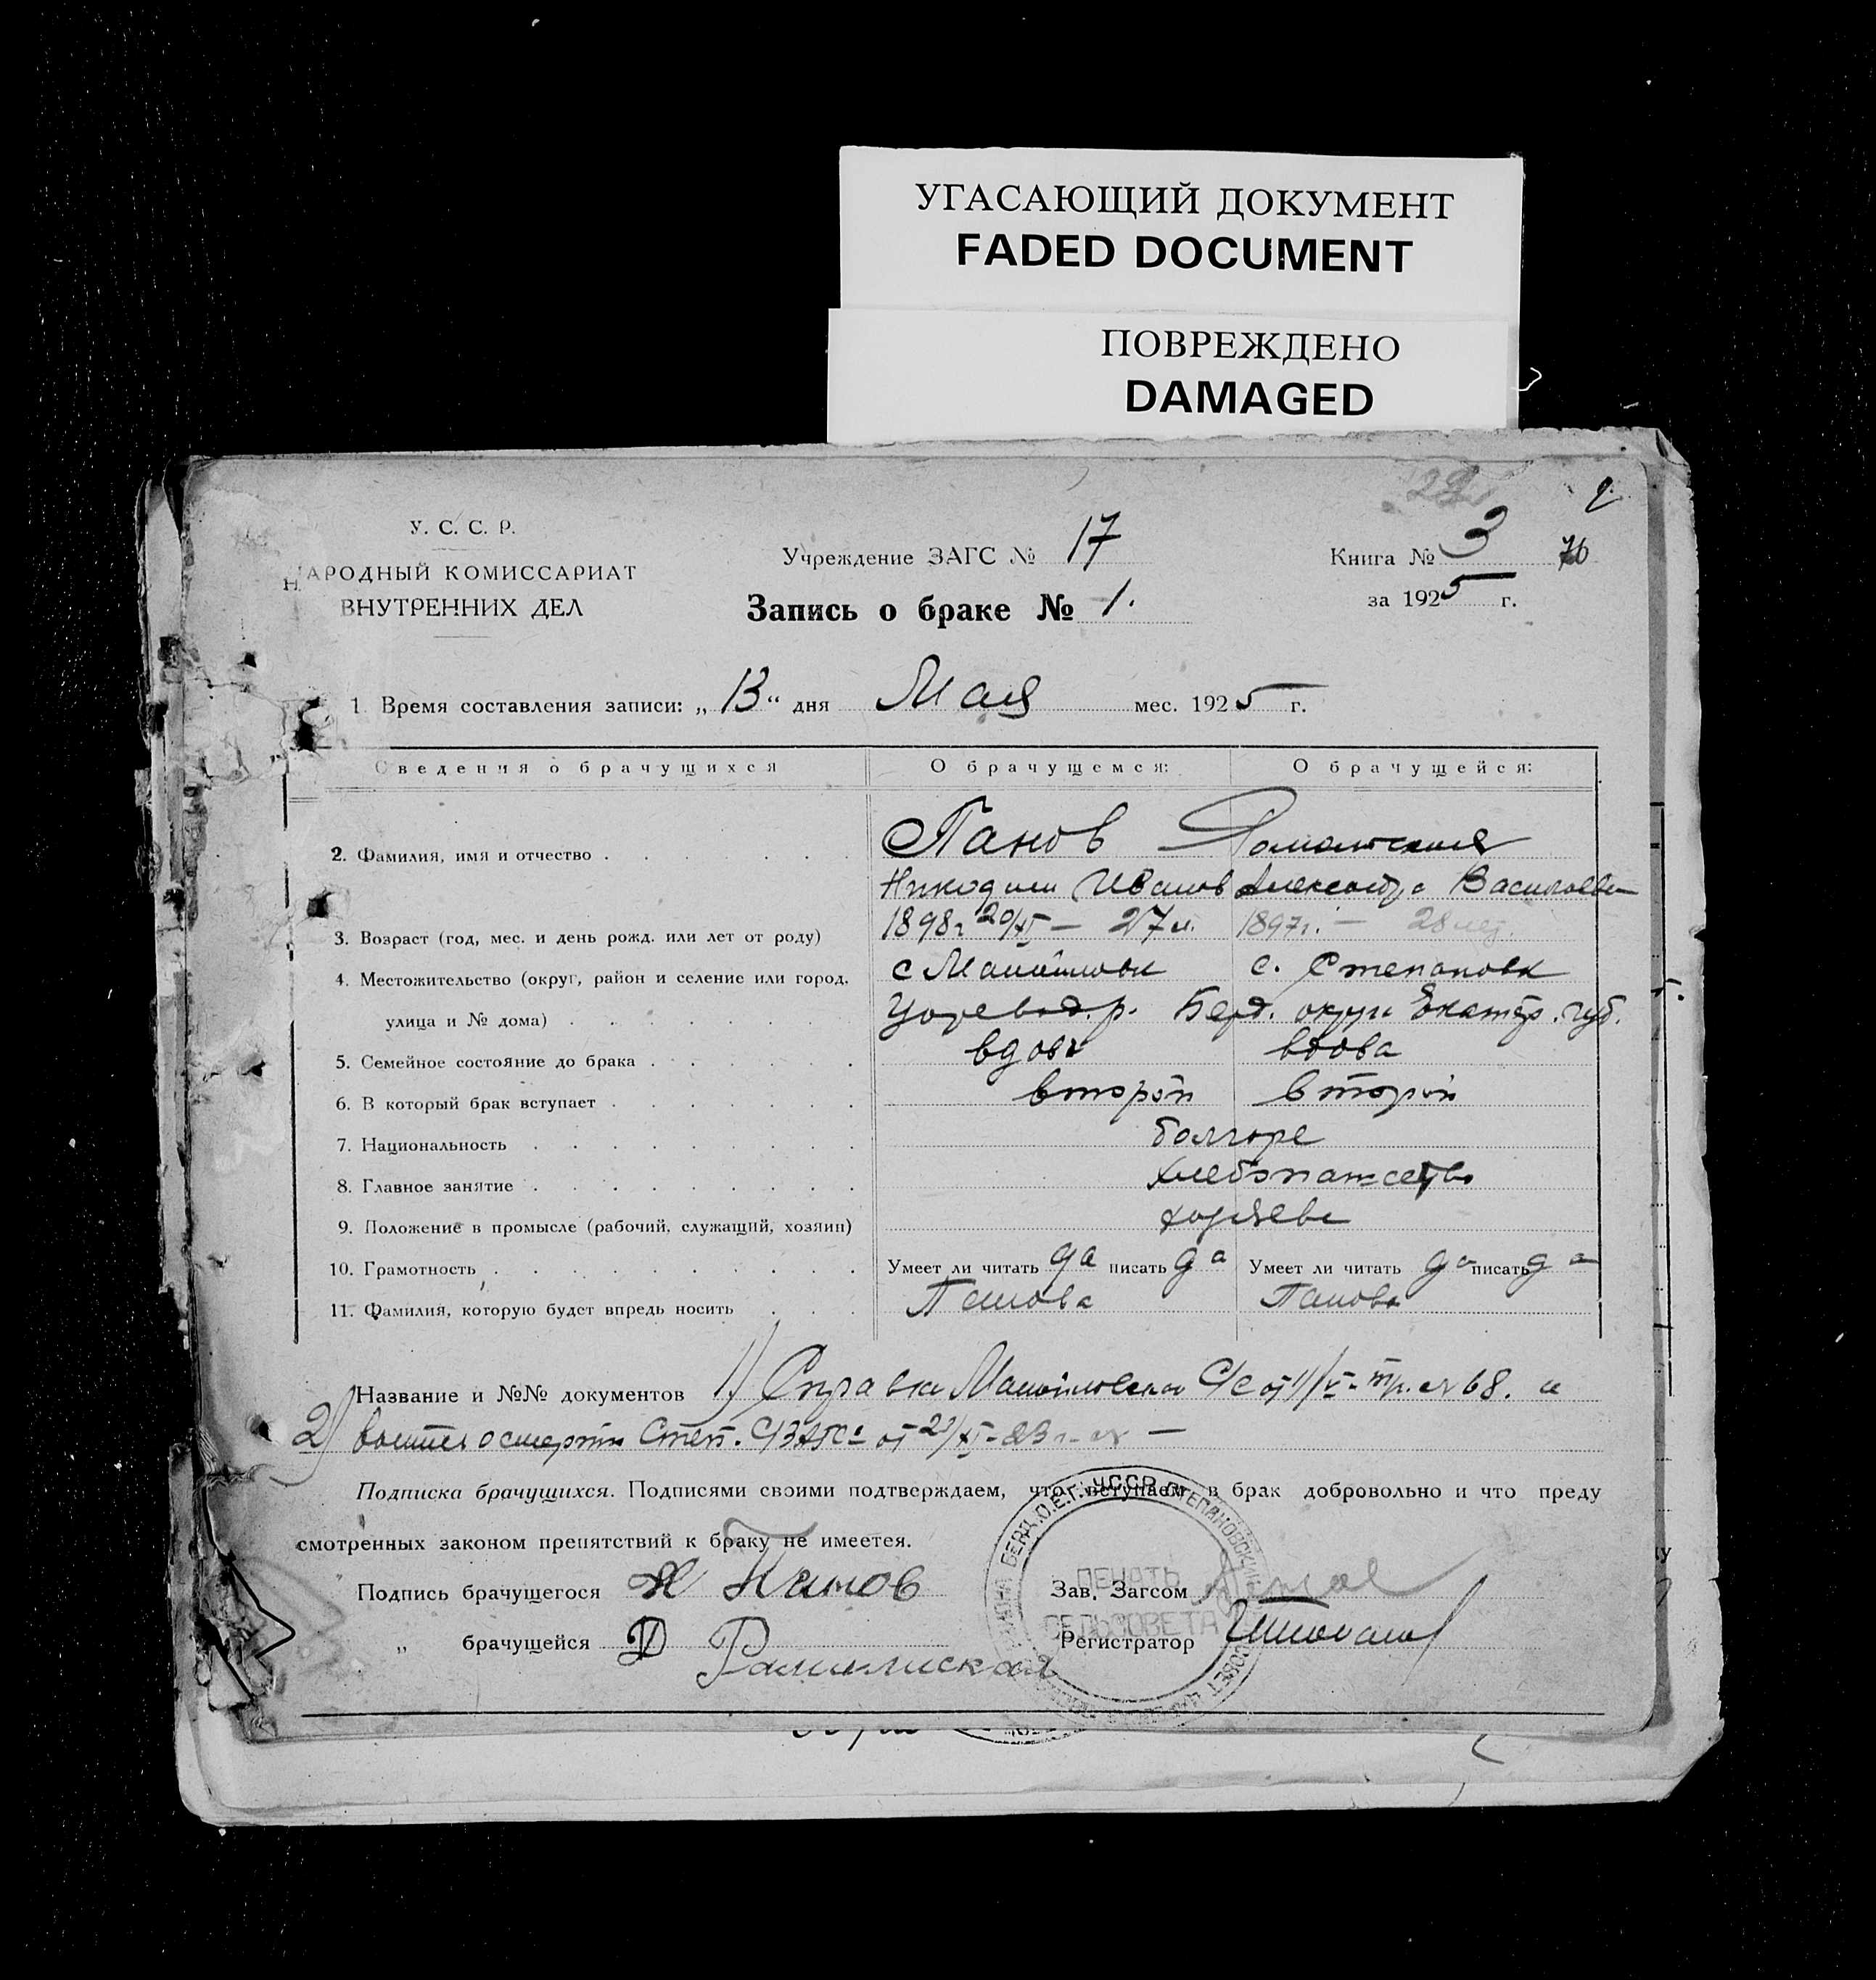 УГАСАЮЩИЙ ДОКУМЕНТ
FADED DOCUMENT
ПОВРЕЖДЕНО
DAMAGED
У. С. С. Р.
НАРОДНЫЙ КОМИССАРИАТ
ВНУТРЕННИХ ДЕЛ
Учреждение ЗАГС № 17
Запись о браке № 1.
Книга № 3
за 1925 г.
1. Время составления записи: „13“ дня Мая мес. 1925 г.
Сведения о брачущихся О брачущемся: О брачущейся:
2. Фамилия, имя и отчество Панов
Никодим Иванов Александра Васильевн
3. Возраст (год, мес. и день рожд. или лет от роду) 1898 г 20/XI — 27 л. 1897 г. — 28 лет.
4. Местожительство (округ, район и селение или город, с. с. Степановк
улица и № дома) Царевод. р. Берд. округа Екатер. губ.
5. Семейное состояние до брака вдов вдова
6. В который брак вступает второй второй
7. Национальность болгаре
8. Главное занятие хлебопашество
9. Положение в промысле (рабочий, служащий, хозяин) хозяева
10. Грамотность Умеет ли читать да писать да Умеет ли читать да писать да
11. Фамилия, которую будет впредь носить Панова Панова
Название и №№ документов 1) Справка С/С от 11/V- № 68. и
2) о смерти Степ. от 23 г.
Подписка брачущихся. Подписями своими подтверждаем, что вступаем в брак добровольно и что преду
смотренных законом препятствий к браку не имеется.
Подпись брачущегося Н Панов Зав. Загсом
„ брачущейся Регистратор
ПЕЧАТЬ
СЕЛЬСОВЕТА